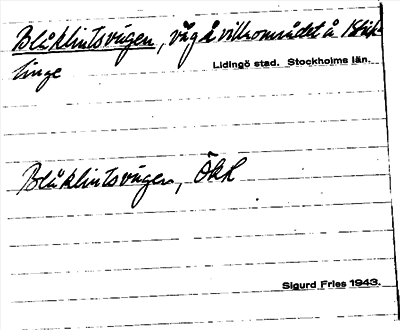 Blåklintsvägen, väg å villaområdet å Käpp-
linge
Lidingö stad. Stockholms län.
Blåklintsvägen, ÖKL
Sigurd Fries 1943.